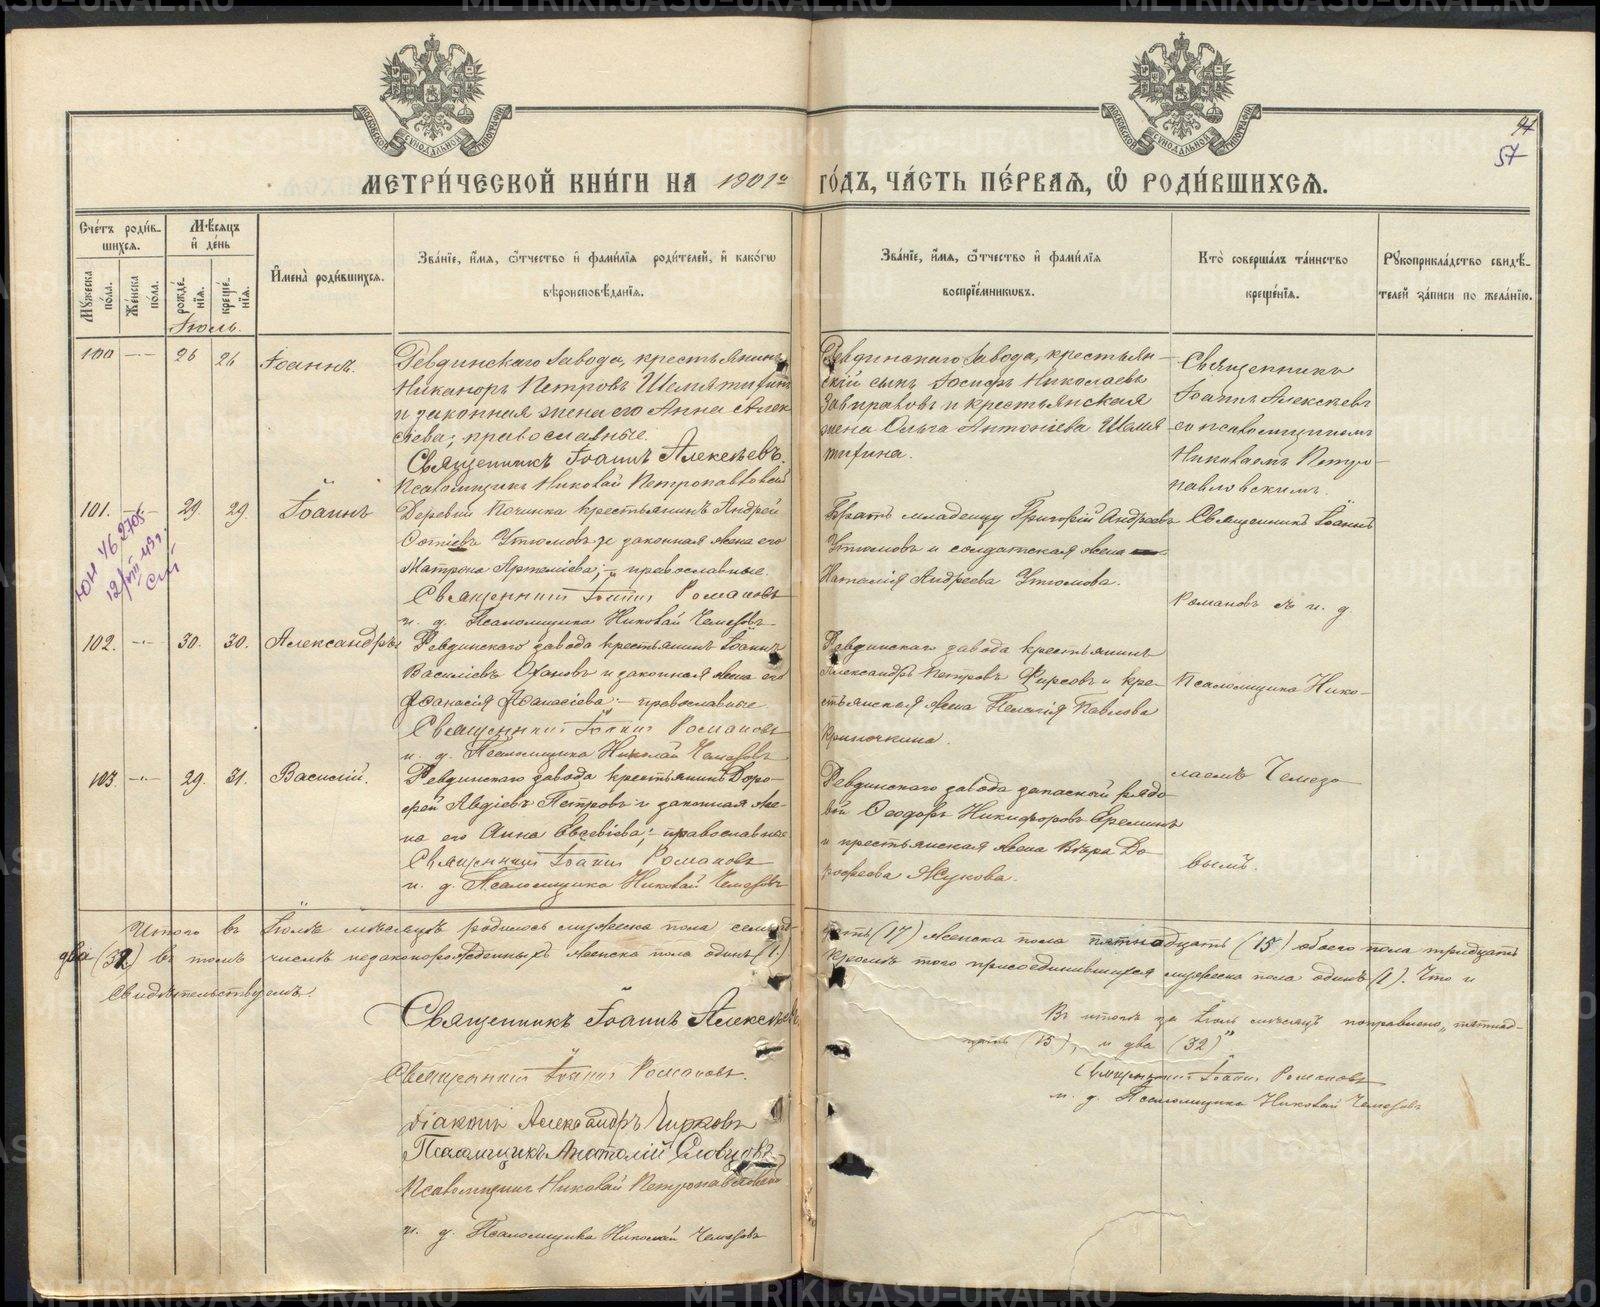 МЕТРИ́ЧЕСКОЙ КНИ́ГИ НА 1901й ГО́ДЪ, ЧА́СТЬ ПЕ́РВАѦ, Ѡ РОДИ́ВШИХСѦ.
57
Сче́тъ роди́в-
шихсѧ.
Мꙋ́жеска по́ла.
Же́нска по́ла.
Мѣ́сѧцъ
и҆ де́нь
рожде́-
нїѧ.
креще́-
нїѧ.
И҆мена̀ роди́вшихсѧ.
Зва́нїе, и҆́мѧ, ѻ҆́тчество и҆ фами́лїѧ роди́телей, и҆ како́гѡ
вѣроисповѣ́данїѧ.
Зва́нїе, и҆́мѧ, ѻ҆́тчество и҆ фами́лїѧ
воспрїе́мникѡвъ.
Кто̀ соверша́лъ та́инство
креще́нїѧ.
Рꙋкоприкла́дство свидѣ́-
телей за́писи по жела́нїю.
Іюль.
100 — 26 26 Іоаннъ.
Ревдинскаго завода, крестьянинъ
Никаноръ Петровъ Шелятигинъ
и законная жена его Анна Алек
сіева; православные.
Священникъ Іоаннъ Алексѣевъ.
Псаломщикъ Николай Петропавловскій
Ревдинскаго завода, крестьян-
скій сынъ Іосифъ Николаевъ
Завираловъ и крестьянская
жена Ольга Антоніева Шеля
тигина.
Священникъ
Іоаннъ Алексѣевъ
съ псаломщикомъ
Николаемъ Петро-
павловскимъ.
101. — 29. 29. Іоаннъ
Деревни Починка крестьянинъ Андрей
Утюмовъ и законная жена его
Матрона Артеміева; — православные.
Священникъ Іоаннъ Романовъ
и. д. Псаломщика Николай Чемезовъ
Братъ младенцу Григорій Андреевъ
Утюмовъ и солдатская жена
Наталія Андреева Утюмова.
Священникъ Іоаннъ
Романовъ съ и. д.
102. — 30. 30. Александръ
Ревдинскаго завода крестьянинъ Іоаннъ
Василіевъ и законная жена его
Аѳанасія Аѳанасіева; — православные
Священникъ Іоаннъ Романовъ
и. д. Псаломщика Николай Чемезовъ
Ревдинскаго завода крестьянинъ
Александръ Петровъ Фирсовъ и кре-
стьянская жена Пелагія Павлова
Криночкина.
Псаломщика Нико-
103. — 29. 31. Василій.
Ревдинскаго завода крестьянинъ Доро-
фей Авдіевъ Петровъ и законная же-
на его Анна Евсевіева; — православные
Священникъ Іоаннъ Романовъ
и. д. Псаломщика Николай Чемезовъ
Ревдинскаго завода запасной рядо
вой Ѳеодоръ Никифоровъ Ереминъ
и крестьянская жена Вѣра До
рофеева Жукова.
лаемъ Чемезо
вымъ.
Итого въ Іюлѣ мѣсяцѣ родилось мужеска пола семнад
цать (17) женска пола пятнадцать (15) обоего пола тридцать
два (32) въ томъ числѣ незаконорожденныхъ женска пола одинъ (1.)
Кромѣ того присоединившихся мужеска пола одинъ (1). Что и
Свидѣтельствуемъ.
Священникъ Іоаннъ Алексѣевъ
Священникъ Іоаннъ Романовъ.
Діаконъ Александръ Чирковъ
Псаломщикъ Анатолій Словцовъ
Псаломщикъ Николай Петропавловскій
и. д. Псаломщика Николай Чемезовъ
Въ итогѣ за Іюль мѣсяцъ поправлено „пятнад-
цать (15), и два (32)"
Священникъ Іоаннъ Романовъ
и. д. Псаломщика Николай Чемезовъ
METRIKI.GASO-URAL.RU